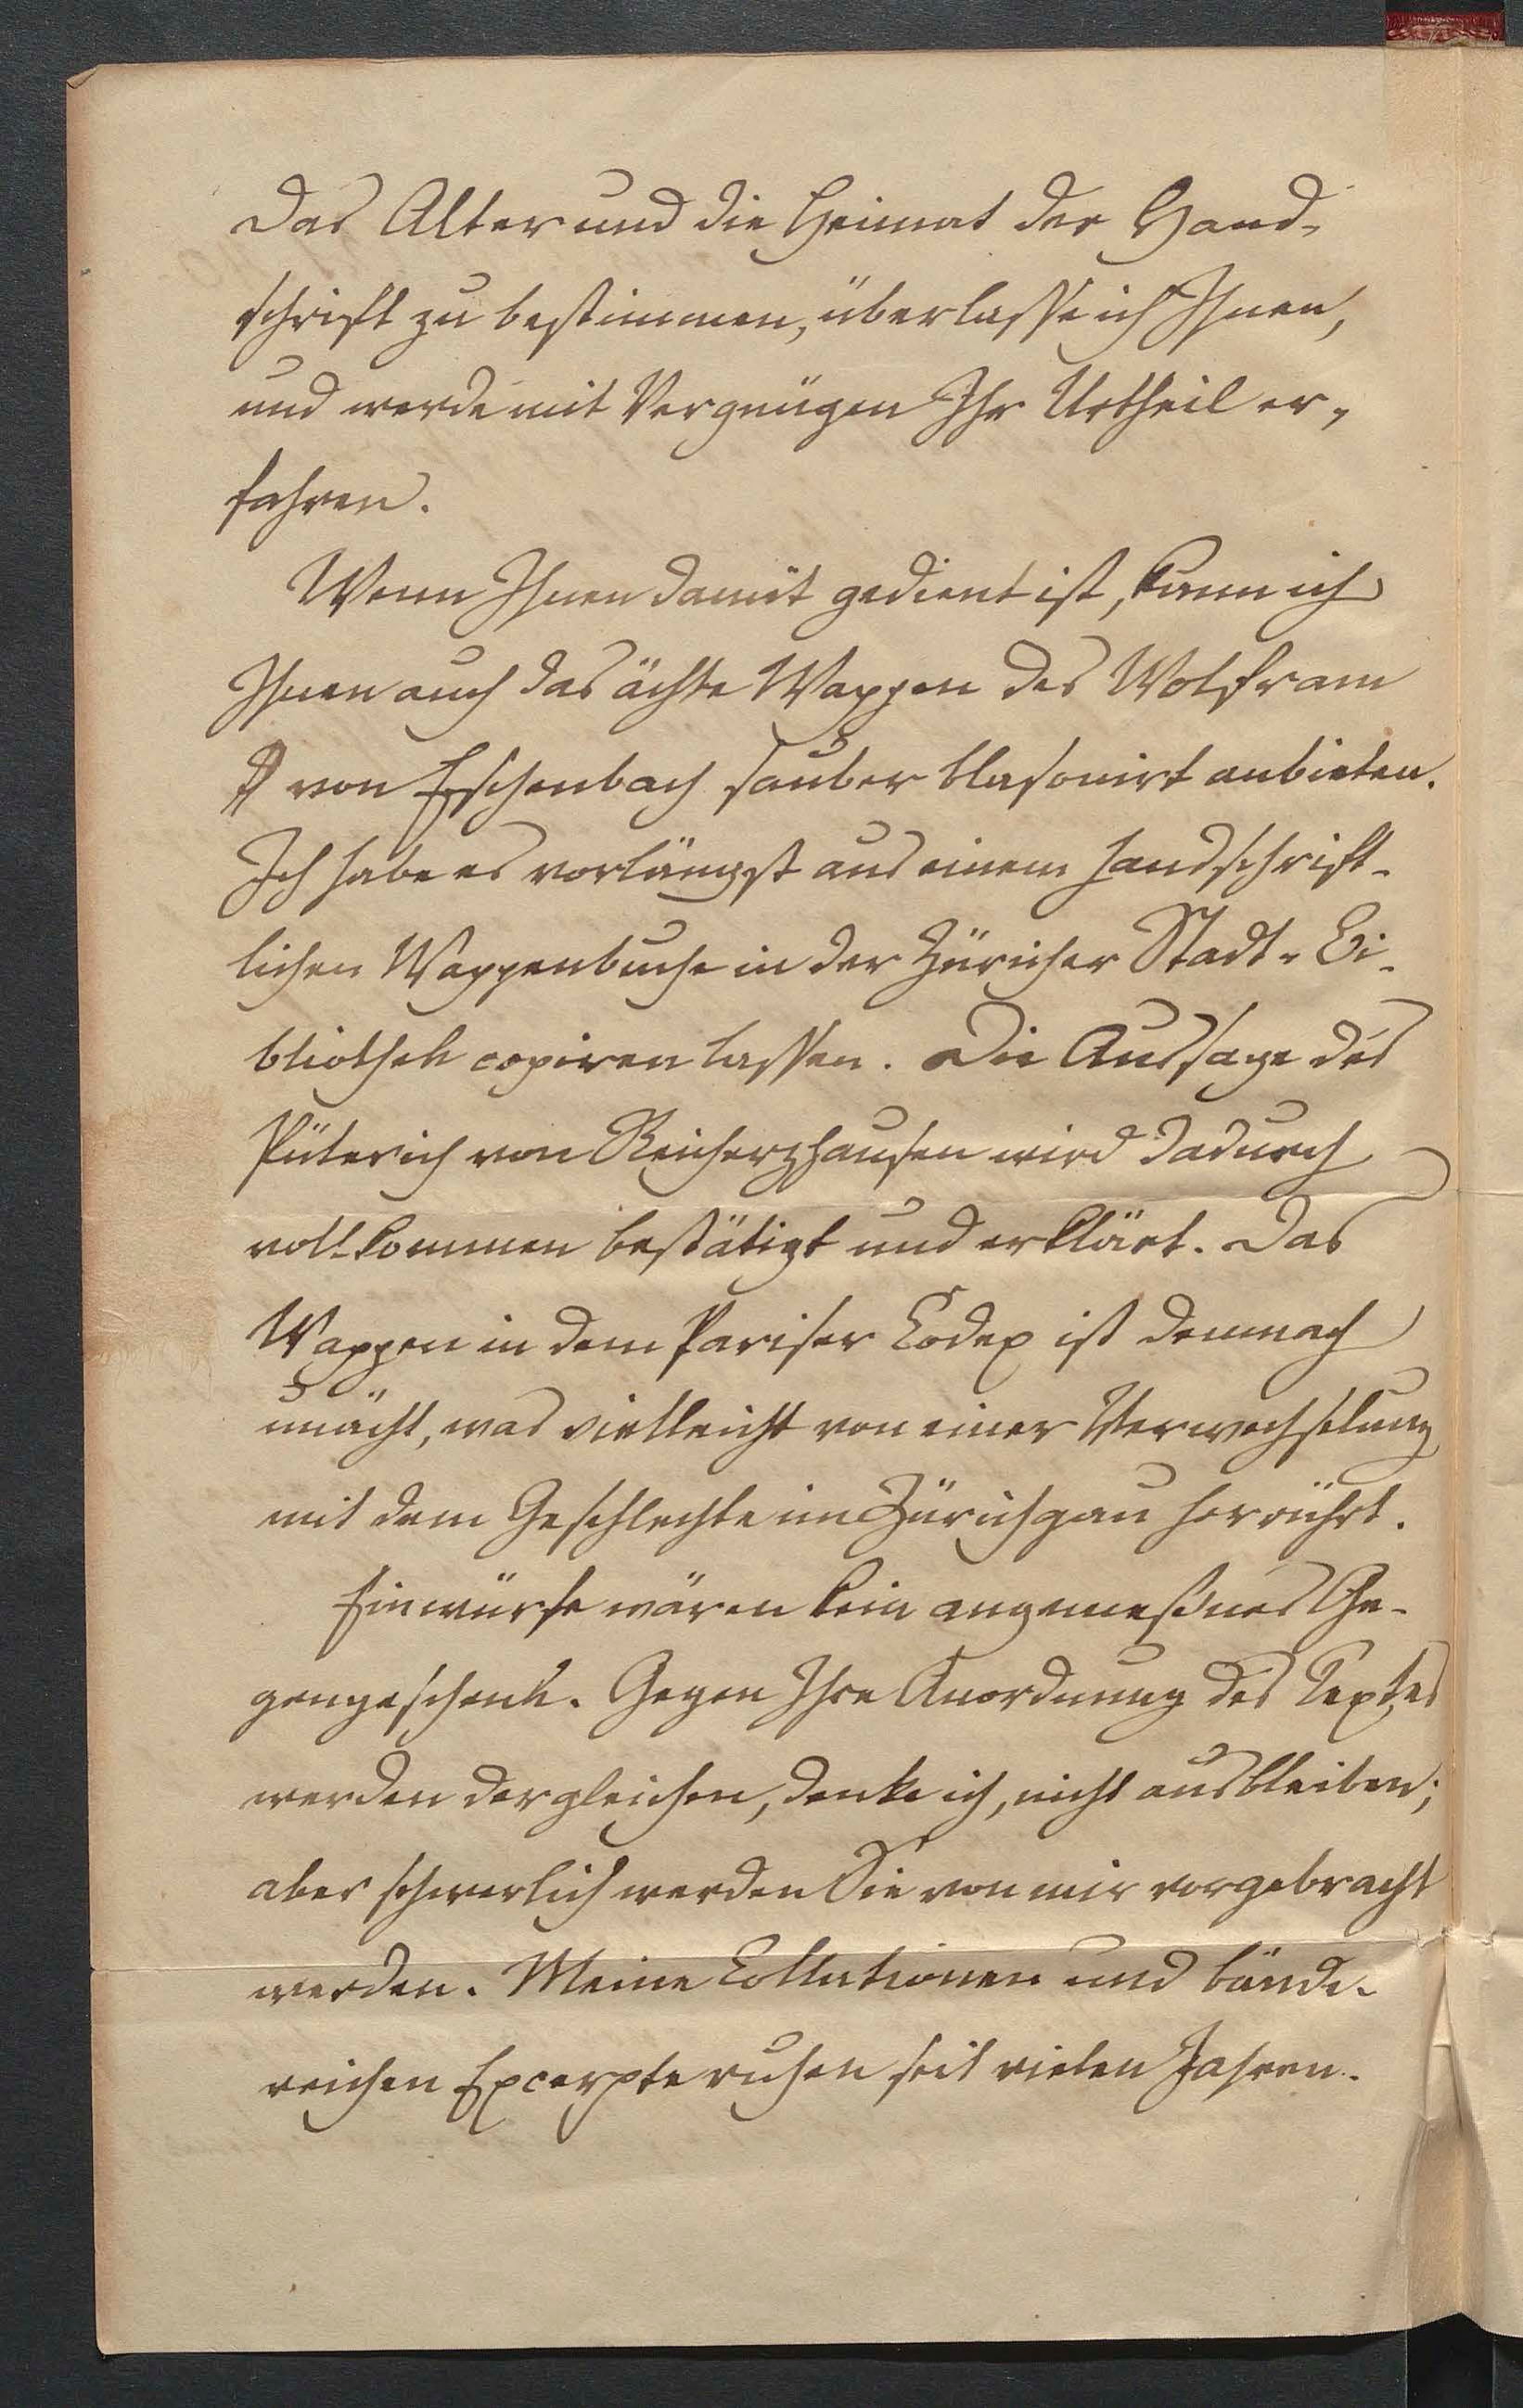 Das Alter und die Heimat der Hand-
schrift zu bestimmen, überlasse ich Ihnen,
und werde mit Vergnügen Ihr Urtheil er-
fahren.
Wenn Ihnen damit gedient ist, kann ich
Ihnen auch das ächte Wappen des Wolfram
von Eschenbach sauber blasonirt anbieten.
Ich habe es vorlängst aus einem handschrift-
lichen Wappenbuche in der Züricher Stadt-Bi-
bliothek copiren lassen. Die Aussage des
Püterich von Reicherzhausen wird dadurch
vollkommen bestätigt und erklärt. Das
Wappen in dem Pariser Codex ist demnach
unächt, was vielleicht von einer Verwechselung
mit dem Geschlechte im Zürichgau herrührt.
Einwürfe wären kein angemeßnes Ge-
gengeschenk. Gegen Ihre Anordnung des Textes
werden dergleichen, denke ich, nicht ausbleiben;
aber schwerlich werden Sie von mir vorgebracht
werden. Meine Collationen und bände-
reichen Excerpte ruhen seit vielen Jahren.